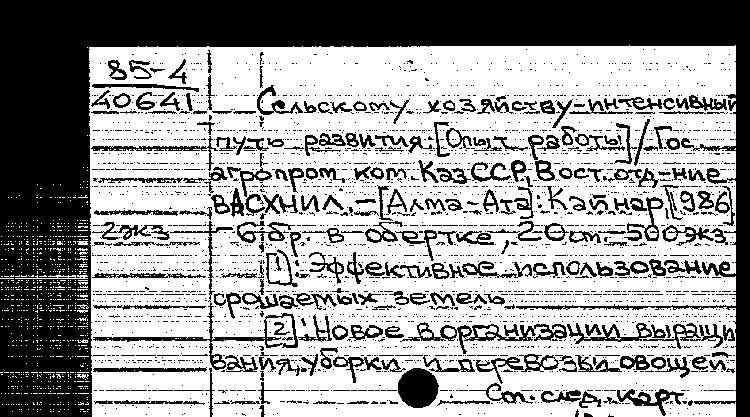 85-4
40641
Сельскому хозяйству-интенсивный
путь развития: [Опыт работы] / Гос.
агропром. ком. КазССР, Вост. отд-ние
ВАСХНИЛ. - [Алма-Ата]: Кайнар, [1986]
2экз - 6 бр. в обертке; 20 см. - 500 экз
[1]: Эффективное использование
орошаемых земель
[2]: Новое в организации выращи
вания, уборки и перевозки овощей
См. след. карт.